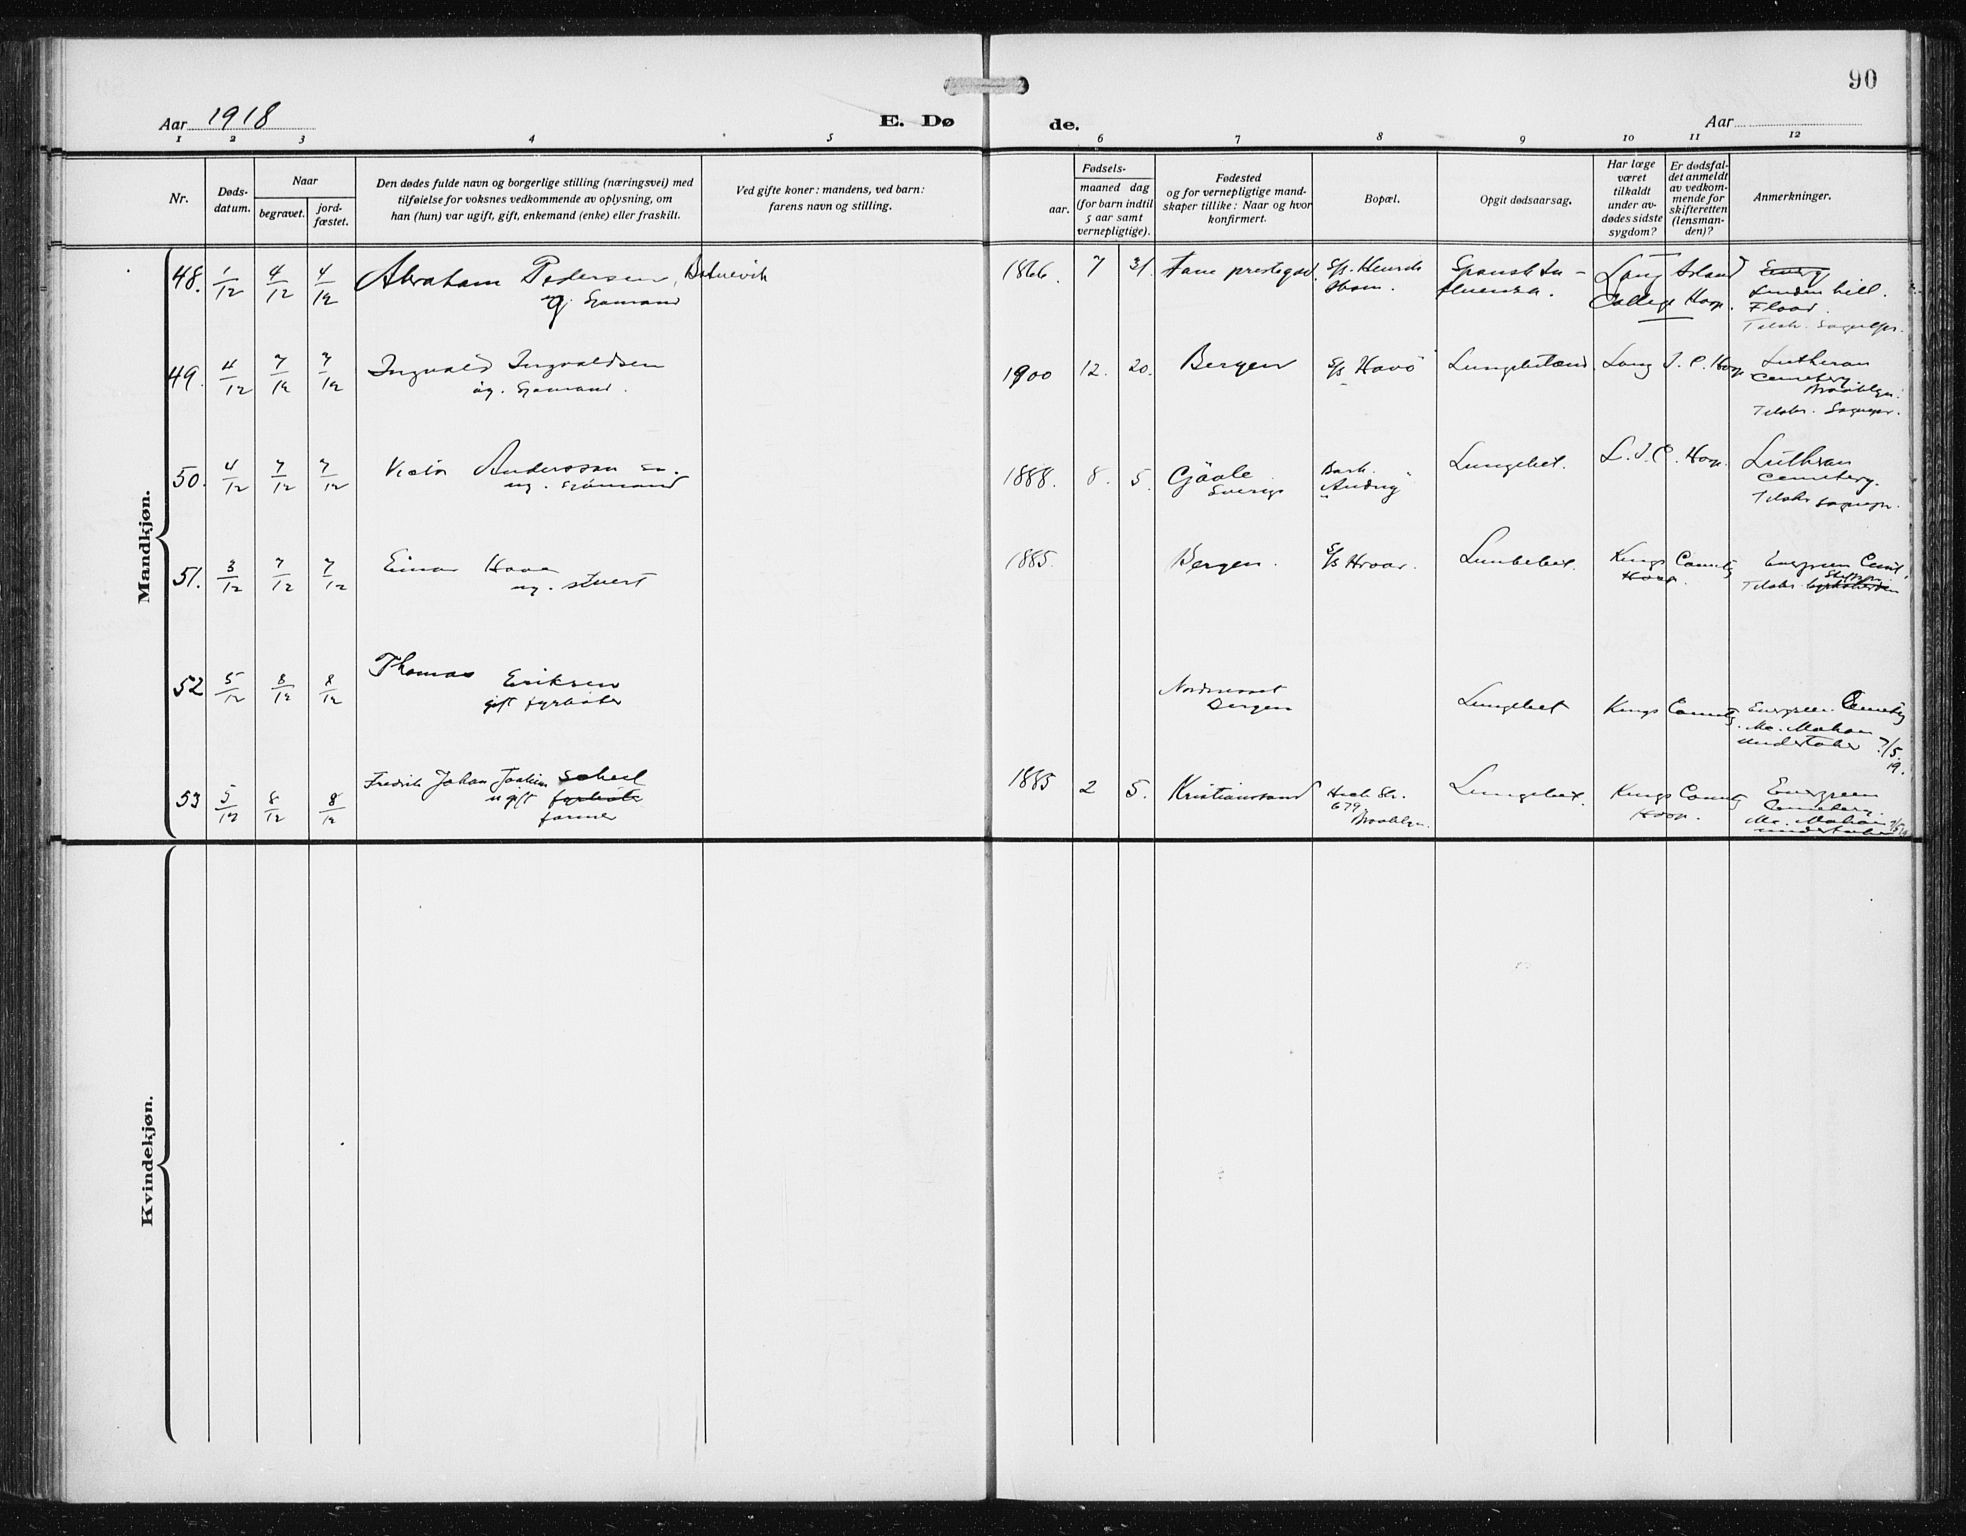 90
Aar 1918
E. Dø
de.
Aar
1 2 3 4 5 6 7 8 9 10 11 12
Nr.
Døds-
datum.
Naar
begravet.
jord-
fæstet.
Den dødes fulde navn og borgerlige stilling (næringsvei) med
tilføielse for voksnes vedkommende av oplysning, om
han (hun) var ugift, gift, enkemand (enke) eller fraskilt.
Ved gifte koner: mandens, ved barn:
farens navn og stilling.
Fødsels-
aar.
maaned dag
(for barn indtil
5 aar samt
vernepligtige).
Fødested
og for vernepligtige mand-
skaper tillike: Naar og hvor
konfirmert.
Bopæl.
Opgit dødsaarsag.
Har læge
været
tilkaldt
under av-
dødes sidste
sygdom?
Er dødsfal-
det anmeldt
av vedkom-
mende for
skifteretten
(lensman-
den)?
Anmerkninger.
Mandkjøn.
48. 1/12 4/12 4/12 Abraham Pedersen, Botnevik
ug. Sjømand
1866. 7 31. Fane prestegad. S/s.
Spansk In-
fluensa.
Long Island
College Hosp.
Linden hill.
49. 4/12 7/12 7/12 Ingvald Ingvaldsen
ug. Sjømand.
1900 12. 20. Bergen S/s Havø Lungebetænd. Long I. C. Hosp.
Lutheran
Cemetery
50. 4/12 7/12 7/12 Victor Andersson
ug. Sjömand
1888. 8. 5. Gjävle
Sverige
Bark.
Lungebet. L. I. C. Hosp.
Luthran
Cemetery.
51. 3/12 7/12 7/12 Einar
ug. stuert
1885. Bergen. S/s Hroar. Kings County
Hosp.
Evergreen Cem.
52 5/12 8/12 8/12 Thomas Eriksen
gift fyrbøter
Nordnesset
Bergen
Lungebet Kings County
Evergreen Cemetery
Mc. Mahon
undertaker 7/5.
19.
53 5/12 8/12 8/12 Fredrik Johan Joakim
ugift fyrbøter
farmer
1885 2 5. Kristianssand
679
Brooklyn.
Lungebet. Kings County
Hosp.
Evergreen
Cemetery.
Mc. Mahon
undertaker
Kvindekjøn.